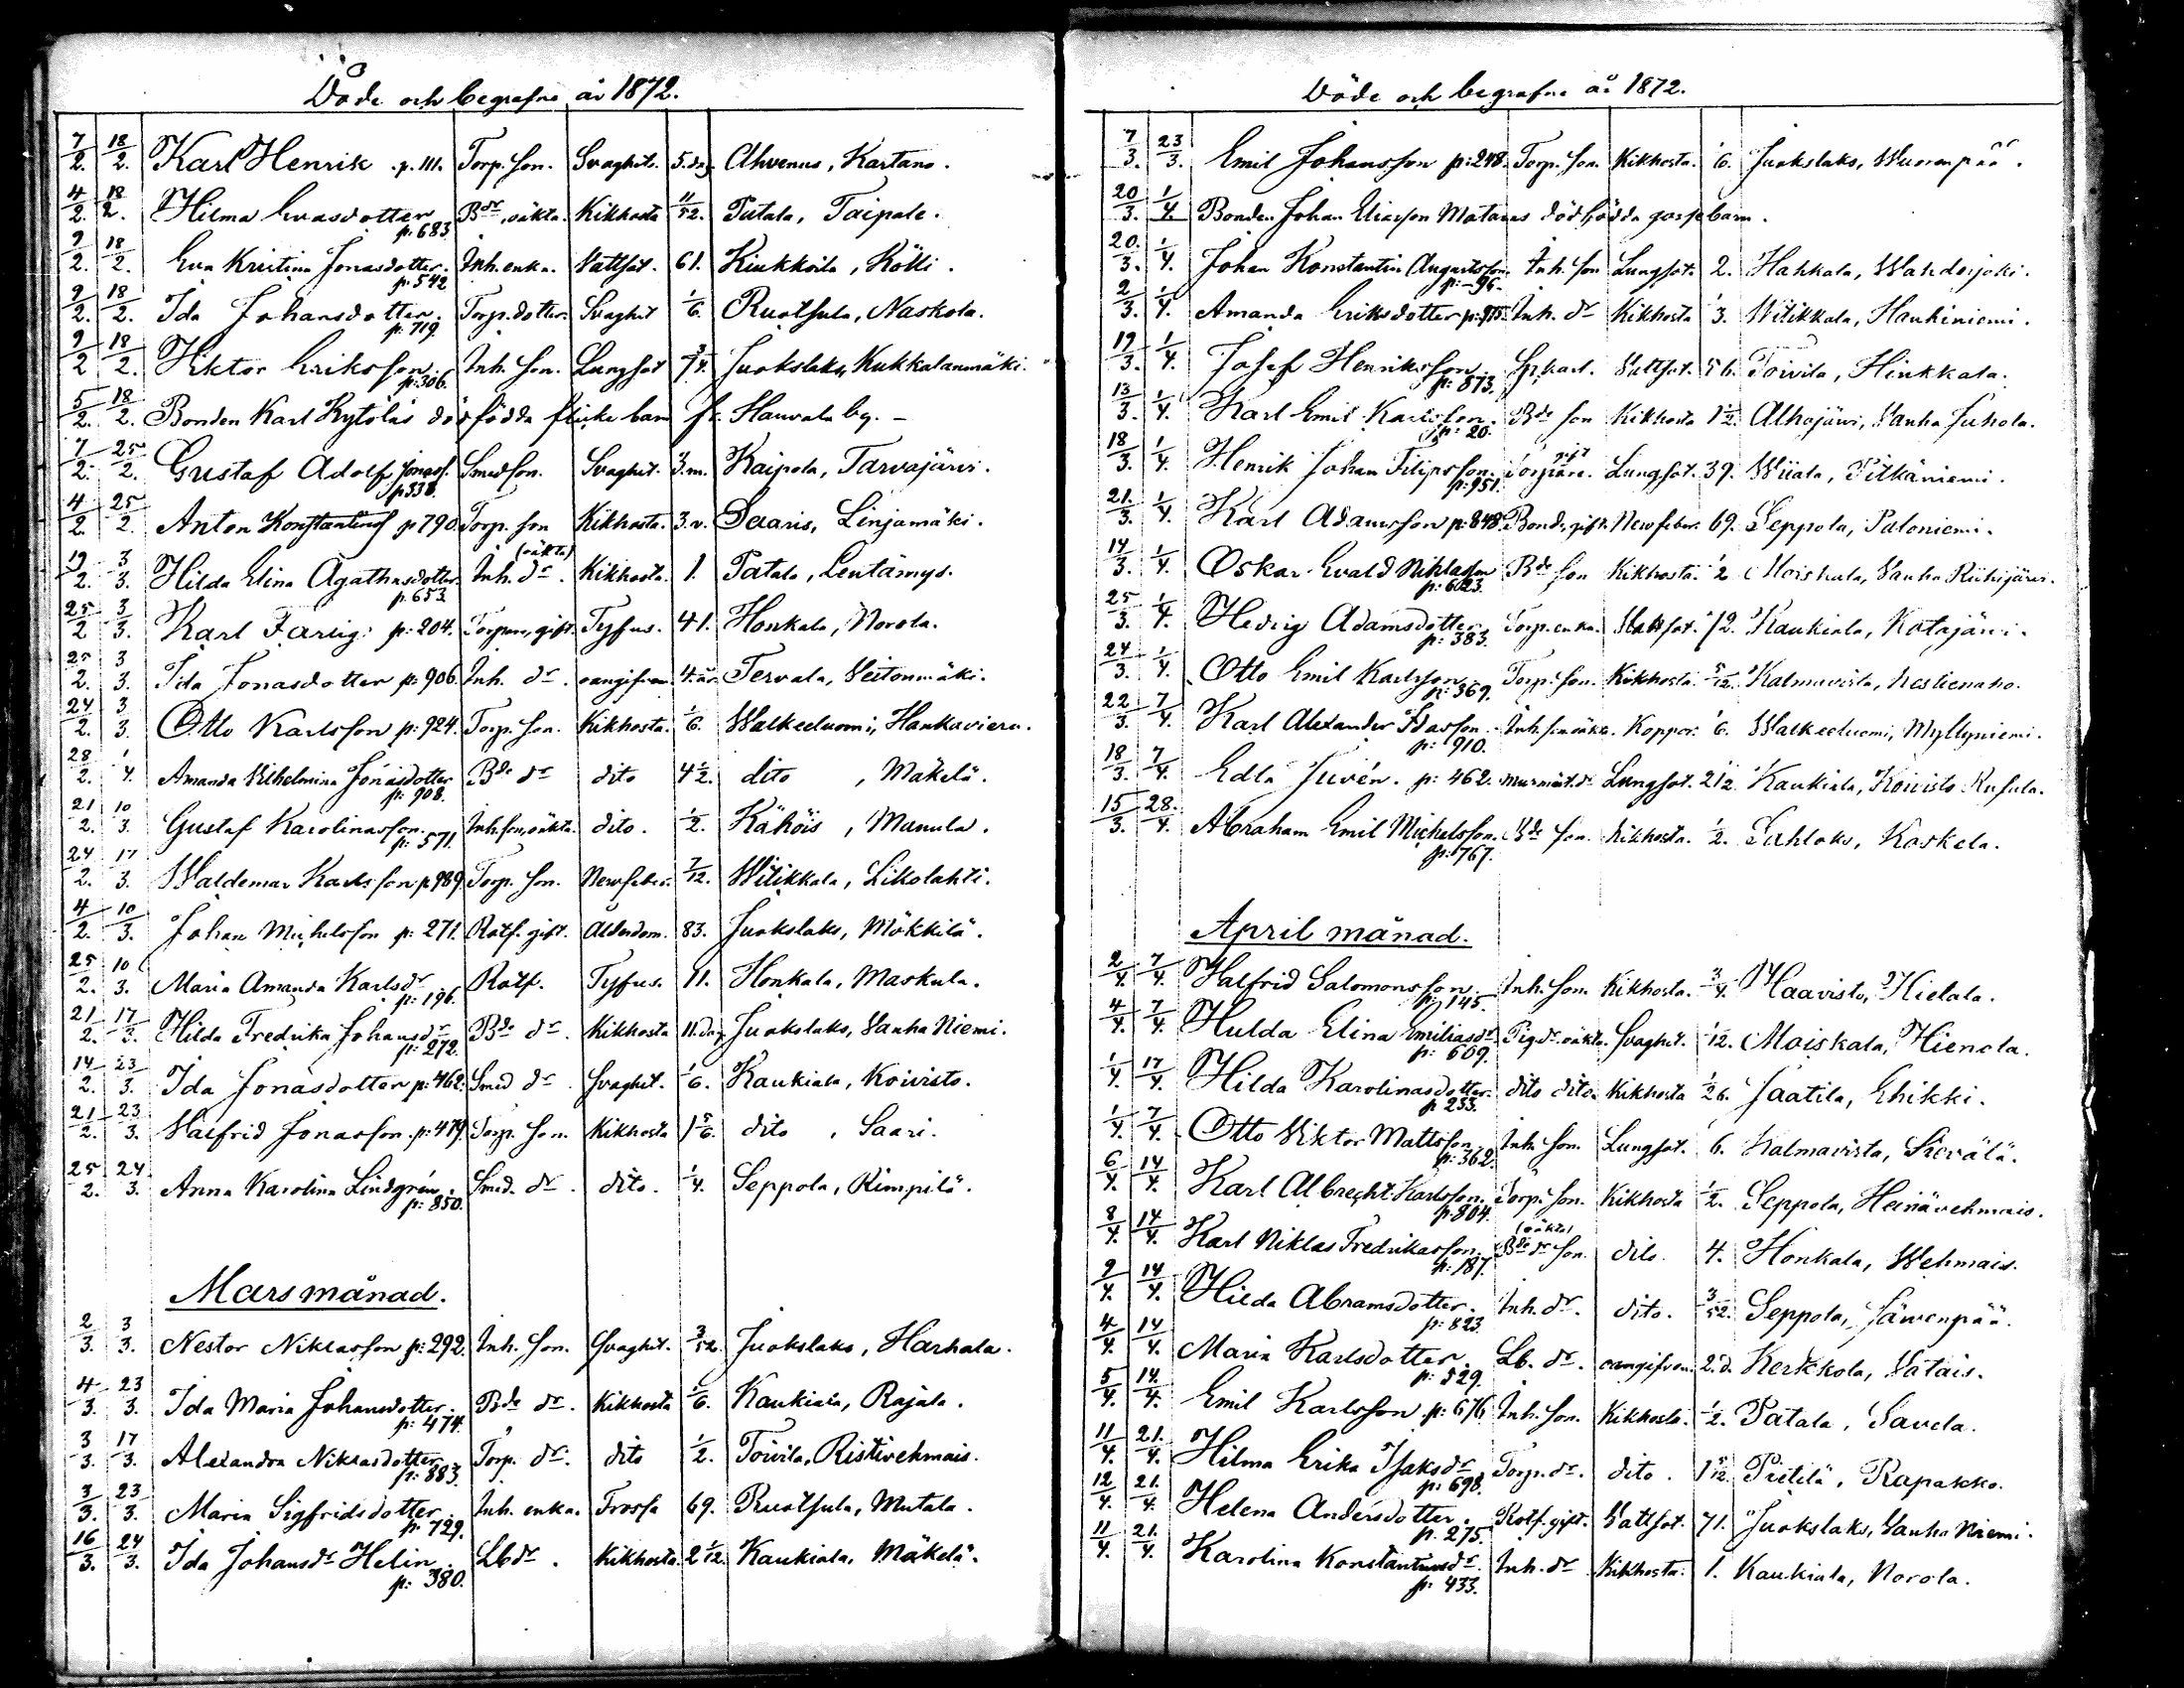 Döde och begrafne år 1872.
7/2. 18/2. Karl Henrik p. 111. Torp. son. Svaghet. 5. dag. Ahvenus, Kartano.
4/2. 18/2. Hilma Evasdotter p: 683. Bdr, oäkta. Kikhosta 11/52. Tutala, Taipale.
9/2. 18/2. Eva Kristina Jonasdotter. p: 542 Inh. enka. Vattsot. 61. Kiukkoila, Kölli.
9/2. 18/2. Ida Johansdotter. p: 719. Torp. dotter. Svaghet 1/6. Ruotsula, Naskola.
9/2 18/2. Viktor Eriksson. p: 306. Inh. son. Lungsot 7 3/4. Juokslaks, Kukkalanmäki.
5/2. 18/2. Bonden Karl Kytölas dödfödda flicke barn fr. Hauvala by. -
7/2. 25/2. Gustaf Adolf Jonass. p 338. Smedson. Svaghet. 3. m. Kaipola, Tarvajärvi.
4/2. 25/2. Anton Konstantinss p 790. Torp. son Kikhosta. 3. v. Saaris, Linjamäki.
19/2. 3/3. Hilda Elina Agathasdotter. p. 653. Inh. dr. (oäkta) Kikhosta. 1. Tatala, Lentämys.
25/2 3/3. Karl Farlig. p: 204. Torpare, gift. Tyfus. 41. Honkala, Norola.
25/2. 3/3. Ida Jonasdotter p: 906. Inh. dr. oangifven 4. år. Tervala, Veitonmäki.
24/2. 3/3. Otto Karlsson p: 924. Torp. son. Kikhosta. 1/6. Walkeeluomi, Haukaviera.
28/2. 1/4. Amanda Vilhelmina Jonasdotter p: 908. Bde dr dito 4 1/2. dito, Mäkelä.
21/2. 10/3. Gustaf Karolinasson. p: 571. Inh. son, oäkta. dito. 1/2. Kähöis, Manula.
24/2. 17/3. Waldemar Karlsson p 989. Torp. son. Nervfeber. 7/12. Witikkala, Likolahti.
4/2. 10/3. Johan Michelsson p: 271. Rotf. gift. Ålderdom. 83. Juokslaks, Mökkilä.
25/2. 10/3. Maria Amanda Karlsdr p: 196. Rotf. Tyfus. 11. Honkala, Maskula.
21/2. 17/3. Hilda Fredrika Johansdr p: 272. Bde dr. Kikhosta 11. dag. Juokslaks, Vanha Niemi.
14/2. 23/3. Ida Jonasdotter p: 462. Smed dr. Svaghet. 1/6. Kaukiala, Koivisto.
21/2. 23/3. Valfrid Jonasson. p: 479. Torp. son. Kikhosta 1 5/6. dito, Saari.
25/2. 24/3. Anna Karolina Lindgrén. p: 850. Smed. dr. dito. 1/4. Seppola, Rimpilä.
Mars månad.
2/3. 3/3. Nestor Niklasson p: 292. Inh. son. Svaghet. 3/52. Juokslaks, Harhala.
4/3. 23/3. Ida Maria Johansdotter. p: 474. Bde dr. Kikhosta 1/6. Kaukiala, Rajala.
3/3. 17/3. Alexandra Niklasdotter p: 883. Torp. dr. dito 1/2. Toivila, Ristivehmais.
3/3. 23/3. Maria Sigfridsdotter. p: 729. Inh. enka. Frossa 69. Ruotsula, Mutala.
16/3. 24/3. Ida Johansdr Helin. p: 380. Lb dr. Kikhosta. 2 1/12. Kaukiala, Mäkelä.
Döde och begrafne år 1872.
7/3. 23/3. Emil Johansson p: 248. Torp. son. Kikhosta. 1/6. Juokslaks, Wuorenpää.
20/3. 1/4. Bonden Johan Eliasson Matanas dödfödda gossebarn.
20/3. 1/4. Johan Konstantin Augustsson. p: 96. Inh. son Lungsot. 2. Hahkala, Wahderjoki.
2/3. 1/4. Amanda Eriksdotter Inh. dr Kikhosta 1/3. Witikkala, Haukiniemi.
19/3. 1/4. Josef Henriksson. p: 873. Vattsot. 56. Toivila, Hinkkala.
13/3. 1/4. Karl Emil Karlsson. p: 20. Bde son Kikhosta 1 1/2. Alhojärvi, Vanha Juhola.
18/3. 1/4. Henrik Johan Filipsson. p: 951. Torpare. gift Lungsot. 39. Wiiala, Pitkäniemi.
21/3. 1/4. Karl Adamsson p: 848. Bond, gift. Nervfeber. 69. Seppola, Paloniemi.
14/3. 1/4. Oskar Evald Niklasson p: 6023. Bde son Kikhosta. 1/2 Moiskala, Vanha Riihijärvi.
25/3. 1/4. Hedvig Adamsdotter p: 383. Torp. enka. Vattsot. 72. Kaukiala, Katajärvi.
24/3. 1/4. Otto Emil Karlsson. p: 369. Torp. son. Kikhosta. 5/12. Kalmavirta, Kestienaho.
22/3. 7/4. Karl Alexander Idasson. p: 910. Inh. son oäkta. Koppor. 1/6. Walkeeluomi, Myllyniemi.
18/3. 7/4. Edla Juvén. p: 462. Lungsot. 2 1/2. Kaukiala, Koivisto
15/3. 28/4. Abraham Emil Michelsson. p: 767. Bde son. Kikhosta. 1/2. Tahloks, Koskela.
April månad.
2/4. 7/4. Valfrid Salomonsson. p: 145. Inh. son. Kikhosta. 3/4. Haavisto, Hietala.
4/4. 7/4. Hulda Elina Emiliasdr. p: 609. Pig. dr. oäkta. Svaghet. 1/12. Moiskala, Hienola.
1/4. 17/4. Hilda Karolinasdotter. p 233. dito dito. Kikhosta 1/26. Jaatila, Ehikki.
1/4. 7/4. Otto Viktor Mattsson. p: 362. Inh. son. Lungsot. 6. Kalmavirta, Sievälä.
6/4. 14/4. Karl Albrecht Karlsson. p: 804. Torp. son. Kikhosta 1/2. Seppola, Heinävehmais.
8/4. 14/4. Karl Niklas Fredrikasson. p: 187. Bde dr son. (oäkta) dito. 4. Honkala, Wehmais.
9/4. 14/4. Hilda Abramsdotter. p: 823. Inh. dr. dito. 3/52. Seppola, Jäwenpää.
4/4. 14/4. Maria Karlsdotter. p: 529. Lb. dr. oangifven. 2. d. Kerkkola, Vatais.
5/4. 14/4. Emil Karlsson p: 676 Inh. son. Kikhosta. 1/2. Patala, Savela.
11/4. 21/4. Hilma Erika Isaksdr. p: 698. Torp. dr. dito. Pietilä, Rapakko.
12/4. 21/4. Helena Andersdotter. p. 275. Rotf. gift. Vattsot. 71. Juokslaks, Vanha Niemi.
11/4. 21/4. Karolina Konstantinsdr. p: 433. Inh. dr Kikhosta. 1. Kaukiala, Norola.